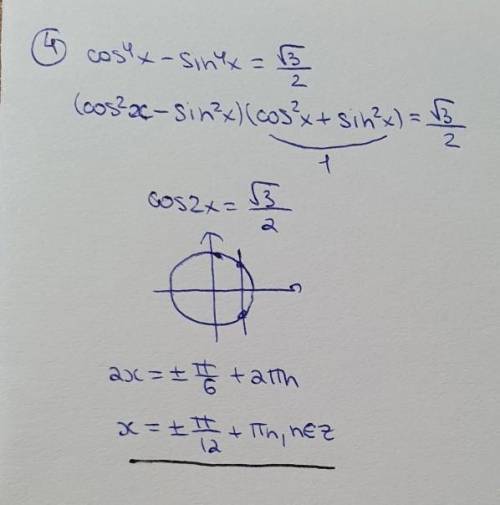 ④ cos⁴x − sin⁴x = √3/2
(cos²x − sin²x)(cos²x + sin²x) = √3/2
1
cos2x = √3/2
2x = ± π/6 + 2πn
x = ± π/12 + πn, n∈z